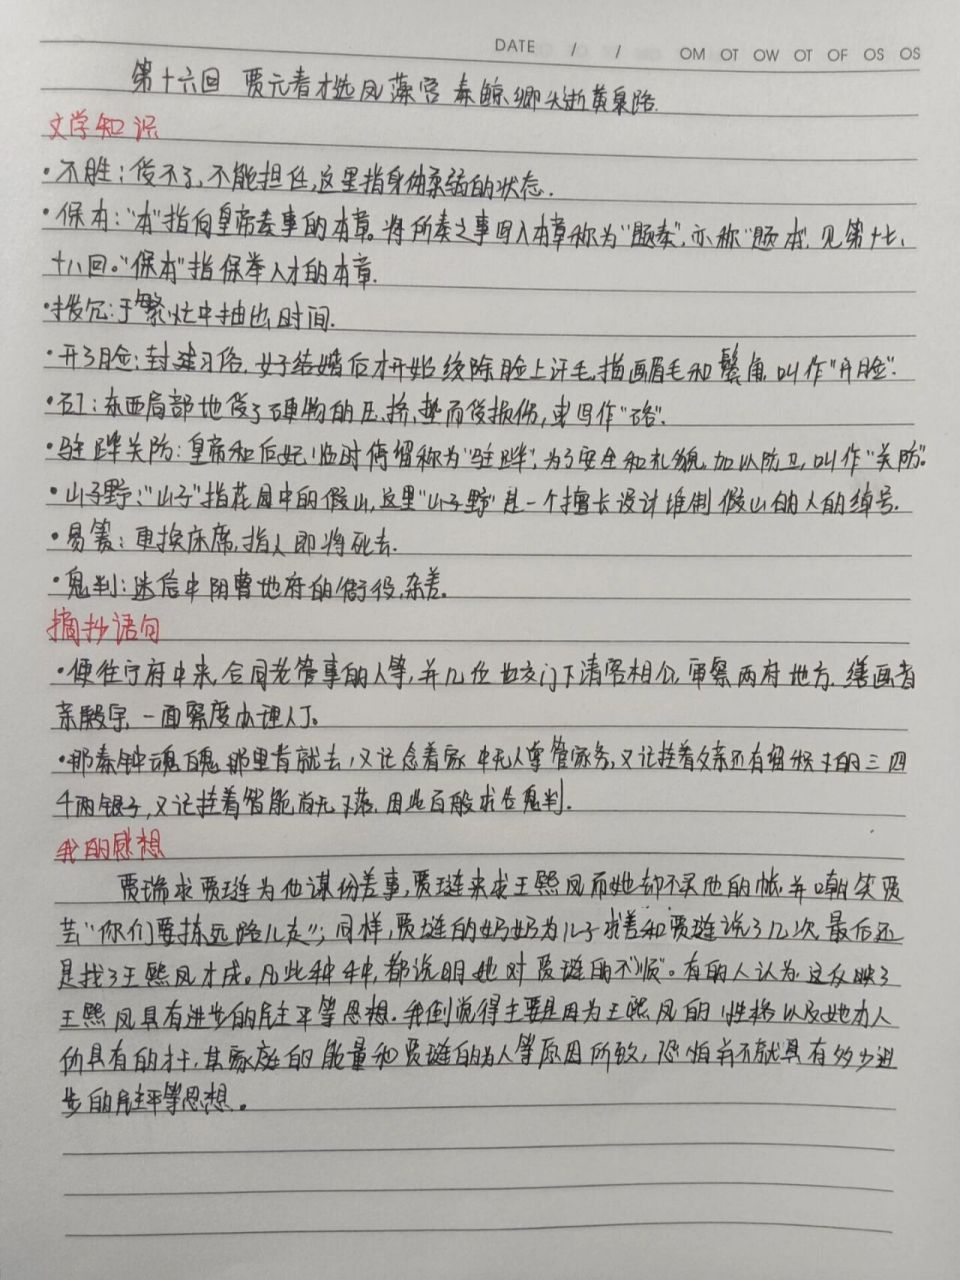 DATE / / OM OT OW OT OF OS OS
第十六回 贾元春才选凤藻宫 秦鲸卿夭逝黄泉路
文学知识
·不胜:受不了,不能担任,这里指身体柔弱的状态.
·保本:"本"指向皇帝奏事的本章。将所奏之事写入本章称为"题奏",亦称"题本",见第十七、
十八回。"保本"指保举人才的本章.
·拨冗:于繁忙中抽出时间.
·开了脸:封建习俗,女子结婚后才开始绞除脸上汗毛,描画眉毛和鬓角,叫作"开脸".
:东西局部地受了硬物的压、挤、垫而受损伤,也写作"硌".
·驻跸关防:皇帝和后妃临时停留称为"驻跸",为了安全和礼貌,加以防卫,叫作"关防".
·山子野:"山子"指花园中的假山,这里"山子野"是一个擅长设计堆制假山的人的绰号.
·易箦:更换床席,指人即将死去.
·鬼判:迷信中阴曹地府的衙役、杂差.
摘抄语句
·便往宁府中来,合同老管事的人等,并几位世交门下清客相公,审察两府地方,缮画省
亲殿宇,一面察度办理人丁。
·那秦钟魂魄那里肯就去,又记念着家中无人掌管家务,又记挂着父亲还有留积下的三四
千两银子,又记挂着智能尚无下落,因此百般求告鬼判.
我的感想
贾 求贾琏为他谋份差事,贾琏来求王熙凤而她却不买他的帐,并嘲笑贾
芸"你们要拣远路儿走";同样,贾琏的奶妈为儿子 和贾琏说了几次,最后还
是找了王熙凤才成。凡此种种,都说明她对贾琏的不"顺"。有的人认为这反映了
王熙凤具有进步的民主平等思想.我倒觉得主要是因为王熙凤的性格以及她为人
所具有的才干,其家庭的能量和贾琏的为人等原因所致,恐怕并不就具有多少进
步的民主平等思想。